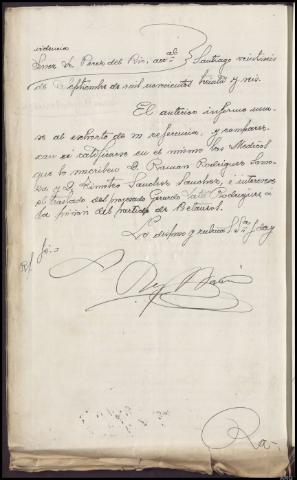 videncia
Señor Sn. Pérez del Río, acctal. Santiago veintiseis
de Septiembre de mil novecientos treinta y seis.
El anterior informe una-
se al exhorto de su referencia, y comparez-
can á ratificarse en el mismo los Médicos
que lo suscriben D. Ramon Rodriguez
y D. Ramiro Sanchez Sanchez, é interesese
el traslado del procesado Gerardo Rodriguez á
la prision del partido de Betanzos.
Lo dispuso y rubrica S. Sª. doy
fé.=